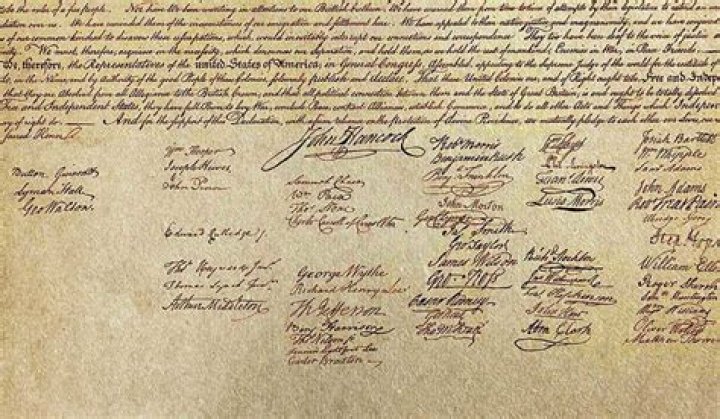 the ruler of a free people. Nor have We been wanting in attentions to our British brethren. We have warned them from time to time of attempts by their legislature to extend an
over us. We have reminded them of the circumstances of our emigration and settlement here. We have appealed to their native justice and magnanimity, and we have conjured
of our common kindred to disavow these usurpations, which would inevitably interrupt our connections and correspondence. They too have been deaf to the voice of justice
We must, therefore, acquiesce in the necessity, which denounces our Separation, and hold them, as we hold the rest of mankind, Enemies in War, in Peace Friends.
We, therefore, the Representatives of the united States of America, in General Congress, Assembled, appealing to the Supreme Judge of the world for the rectitude of
do, in the Name, and by Authority of the good People of these Colonies, solemnly publish and declare, That these United Colonies are, and of Right ought to be Free and Indep
that they are Absolved from all Allegiance to the British Crown, and that all political connection between them and the State of Great Britain, is and ought to be totally dissolved
Free and Independent States, they have full Power to levy War, conclude Peace, contract Alliances, establish Commerce, and to do all other Acts and Things which Indepen
of right do. And for the support of this Declaration, with a firm reliance on the Protection of divine Providence, we mutually pledge to each other our Lives, our
Button Gwinnett
Lyman Hall
Geo Walton.
Wm Hooper
Joseph Hewes,
John Penn
Edward Rutledge
Thos Heyward Junr
Thomas Lynch Junr
Arthur Middleton
John Hancock
Samuel Chase
Wm Paca
Thos Stone
Charles Carroll of Carrollton
George Wythe
Richard Henry Lee
Th Jefferson
Benj Harrison
Thos Nelson jr
Francis Lightfoot Lee
Carter Braxton
Robt Morris
Benjamin Rush
Benj Franklin
John Morton
Geo Clymer
Jas Smith
Geo Taylor
James Wilson
Geo Ross
Caesar Rodney
Geo Read
Tho M:Kean
Phil Livingston
Frans Lewis
Lewis Morris
Richd Stockton
Jno Witherspoon
Fras Hopkinson
John Hart
Abra Clark
Josiah Bartlett
Wm Whipple
Saml Adams
John Adams
Robt Treat Paine
Elbridge Gerry
Step Hopk
William Elle
Roger Sherm
Saml Huntington
Wm Williams
Oliver Wolcott
Matthew Thornt